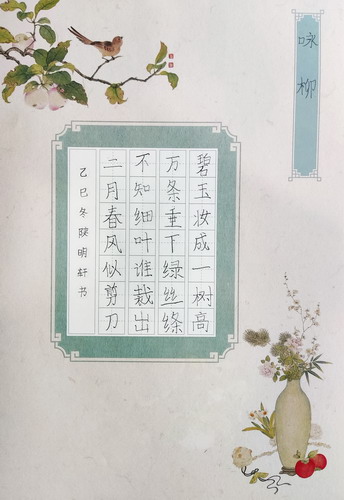 咏柳
碧玉妆成一树高
万条垂下绿丝绦
不知细叶谁裁出
二月春风似剪刀
乙巳冬陕明轩书